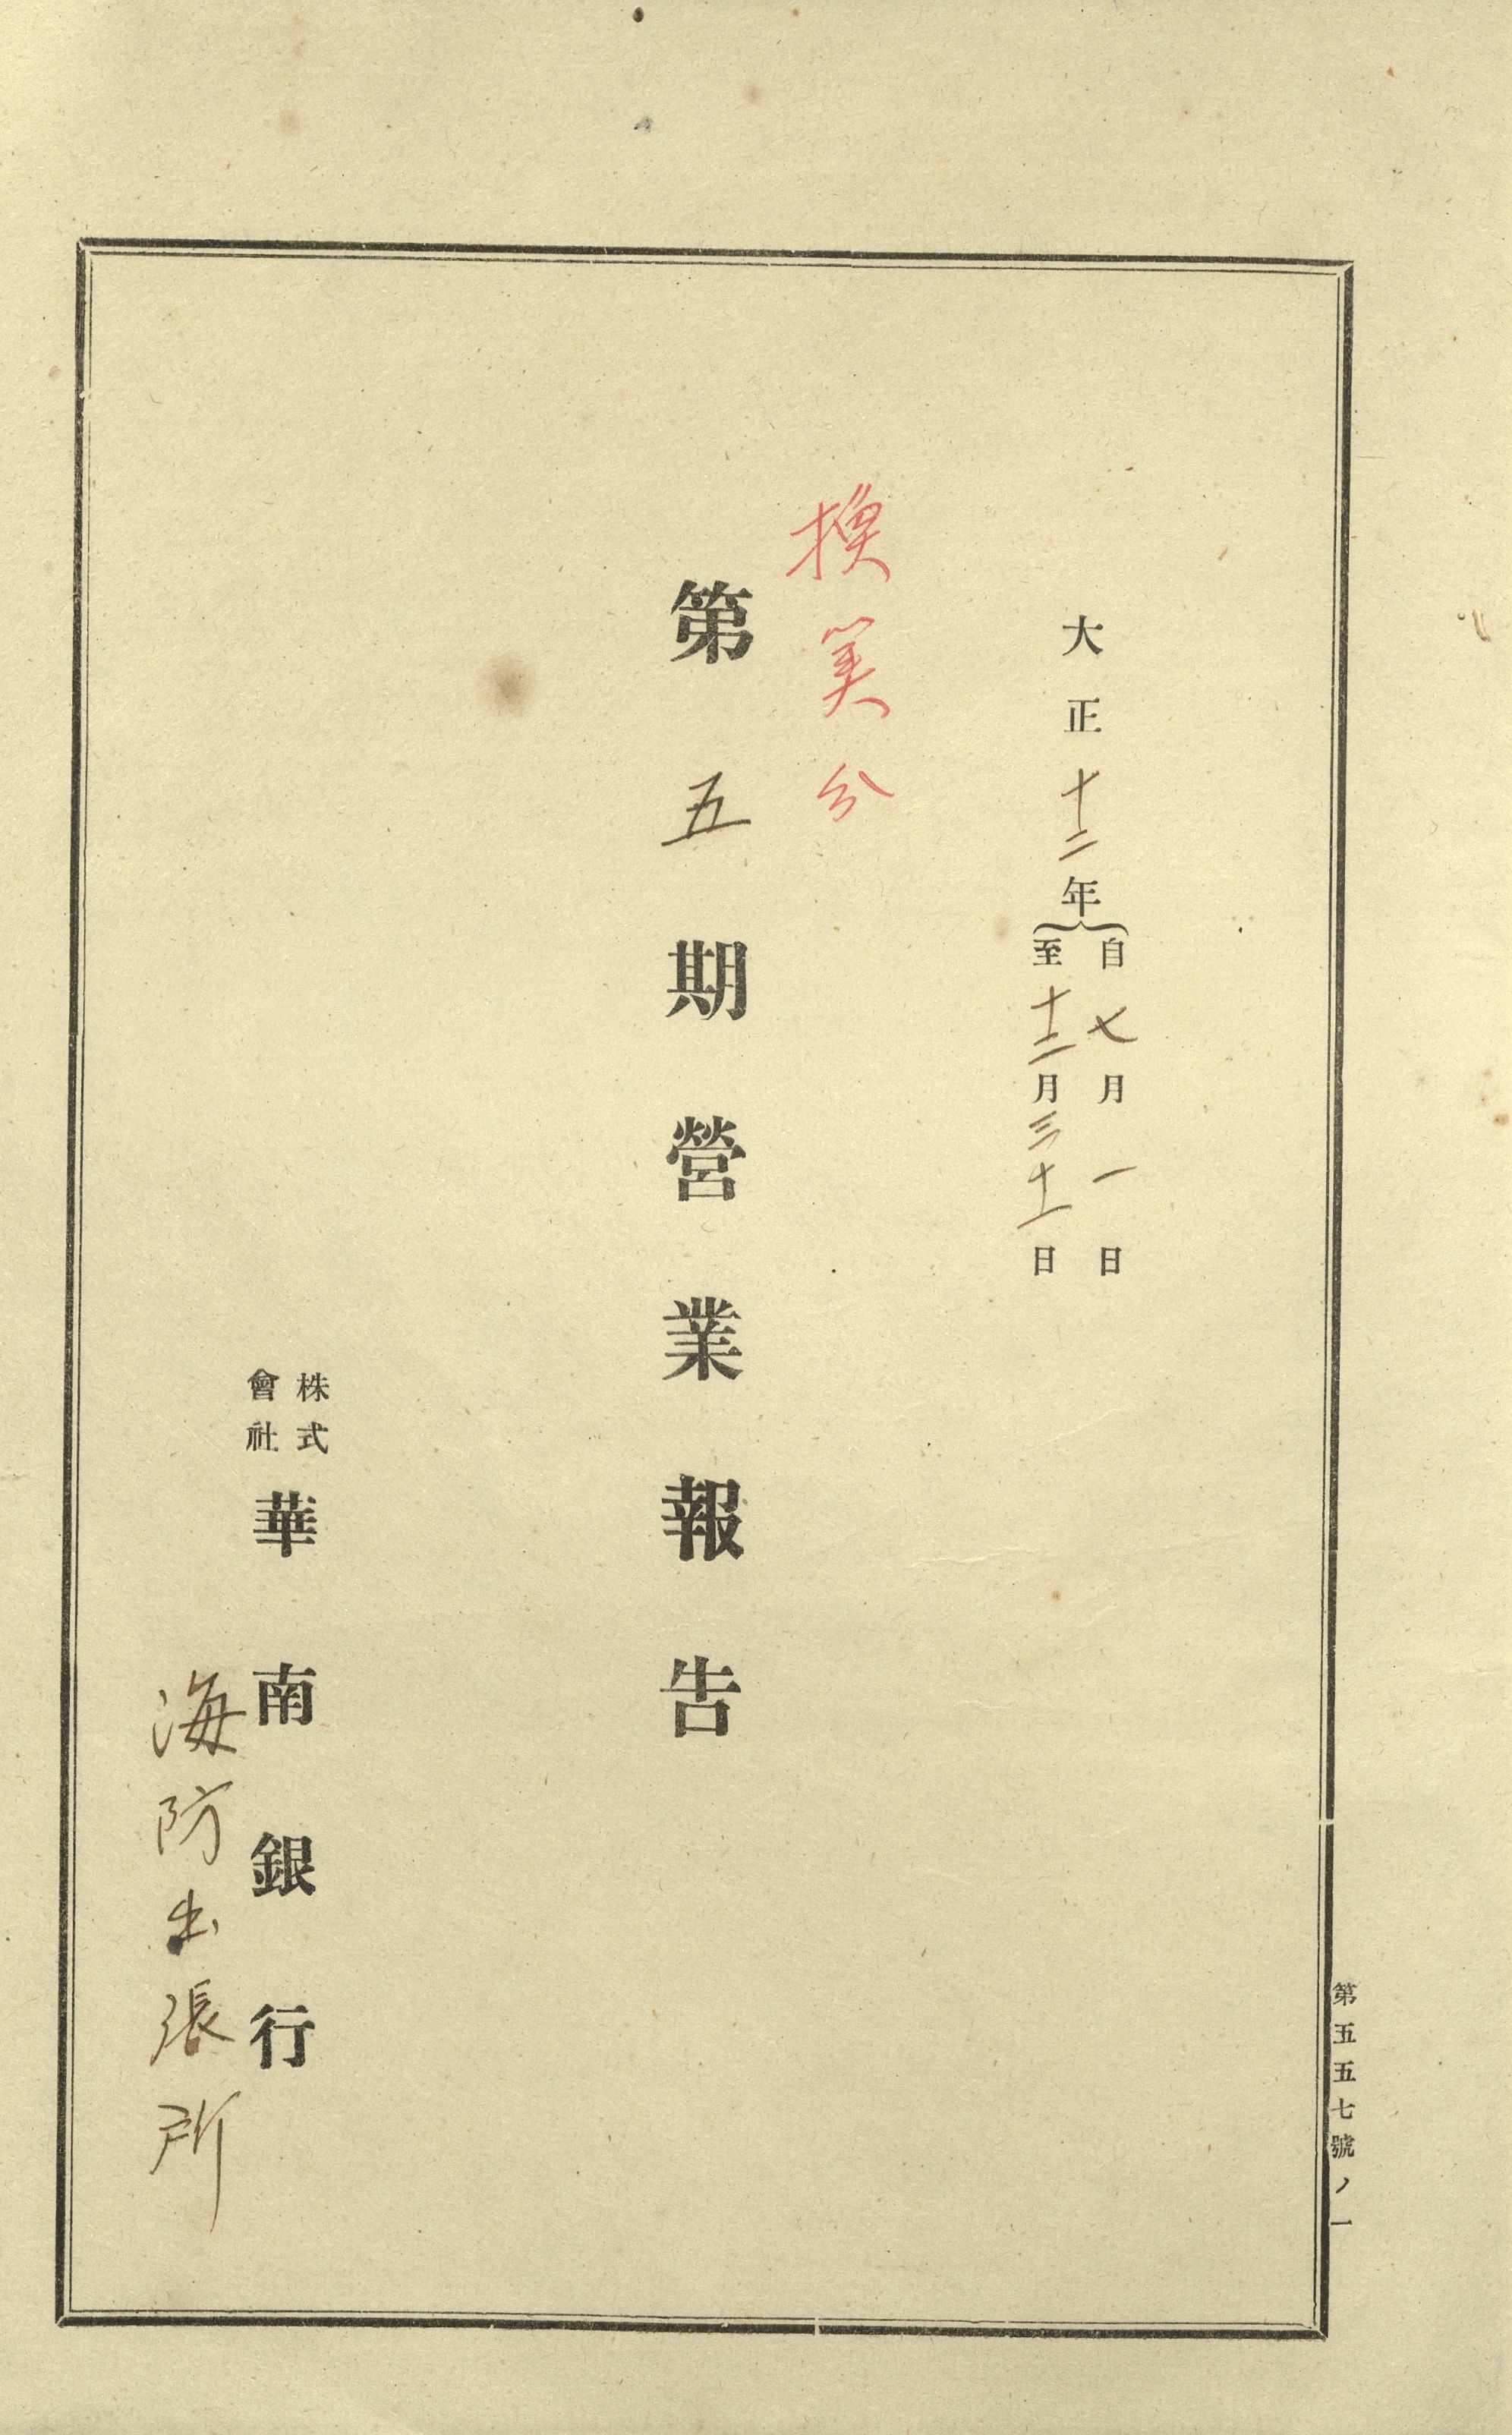 大正十二年
自七月一日
至十二月三十一日
換算分
第五期營業報告
株式
會社
華南銀行
海防出張所
第五五七號ノ一